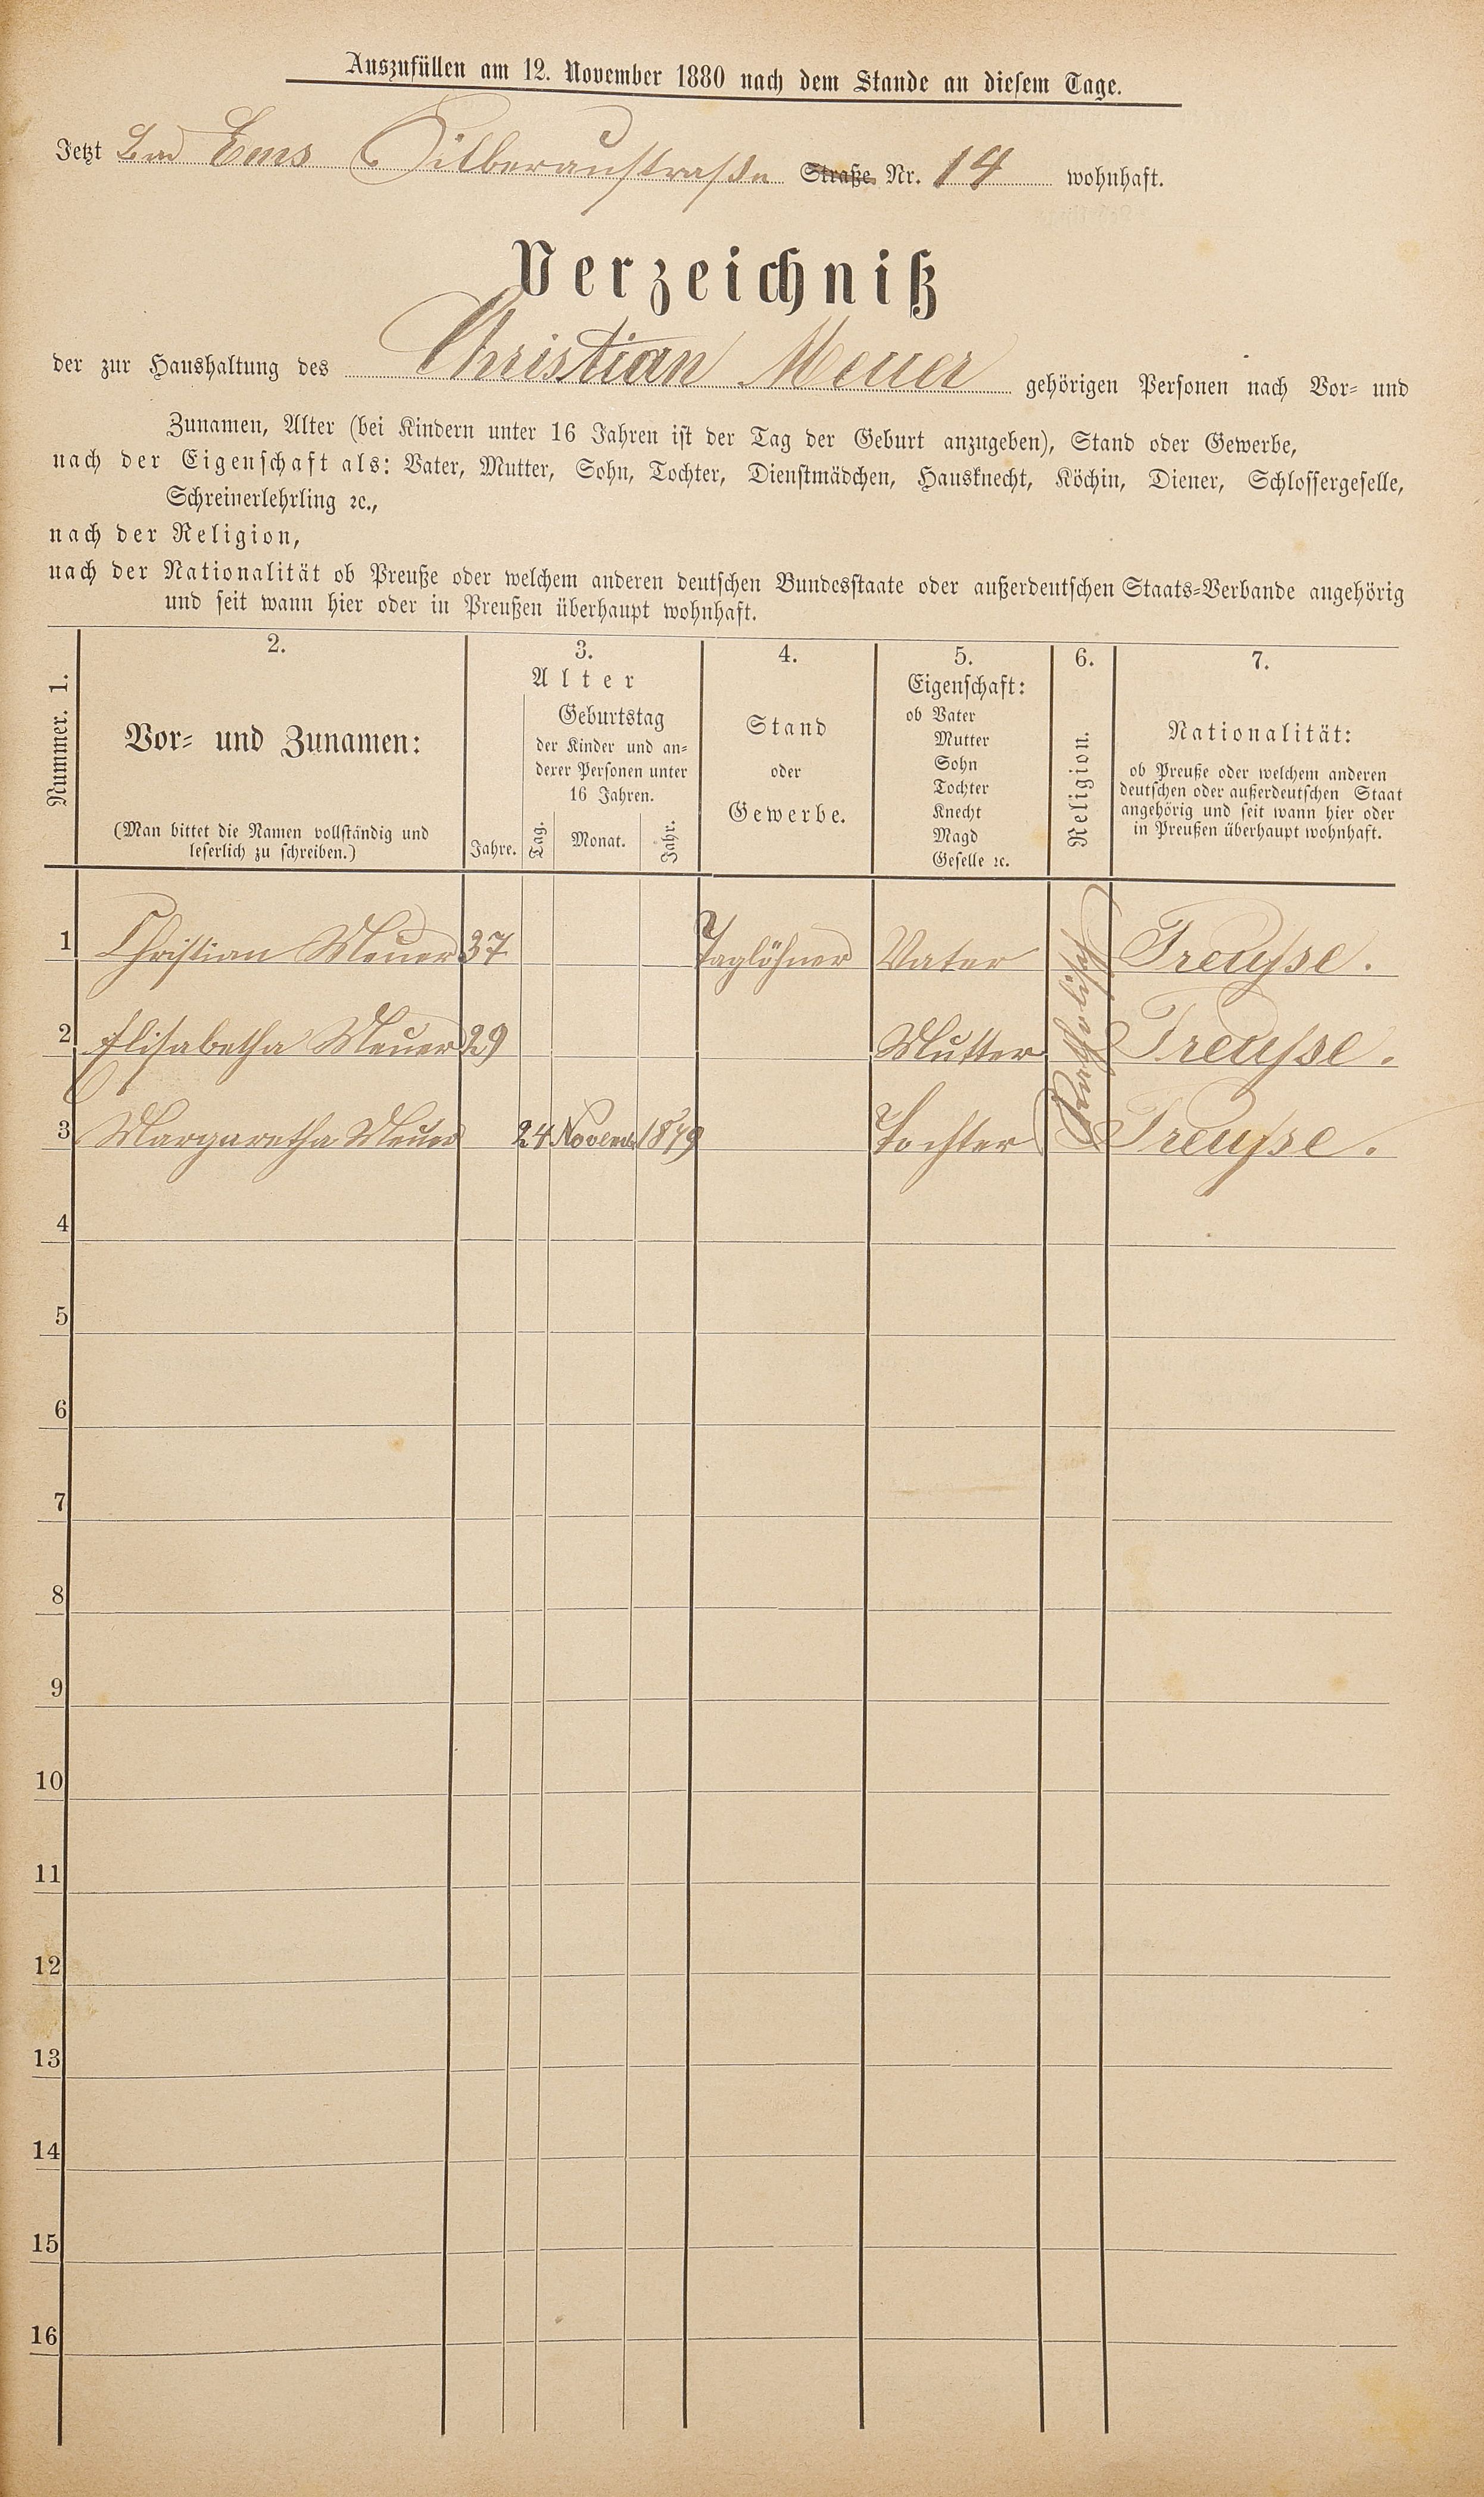 Auszufüllen am 12. November 1880 nach dem Stande an diesem Tage.
Jetzt Bad Ems Silberaustraße Straße Nr. 14 wohnhaft.
Verzeichniß
der zur Haushaltung des Christian Meuer gehörigen Personen nach Vor- und
Zunamen, Alter (bei Kindern unter 16 Jahren ist der Tag der Geburt anzugeben), Stand oder Gewerbe,
nach der Eigenschaft als: Vater, Mutter, Sohn, Tochter, Dienstmädchen, Hausknecht, Köchin, Diener, Schlossergeselle,
Schreinerlehrling ꝛc.,
nach der Religion,
nach der Nationalität ob Preuße oder welchem anderen deutschen Bundesstaate oder außerdeutschen Staats-Verbande angehörig
und seit wann hier oder in Preußen überhaupt wohnhaft.
Nummer. 1.
2.
Vor- und Zunamen:
(Man bittet die Namen vollständig und
leserlich zu schreiben.)
3.
Alter
Jahre.
Geburtstag
der Kinder und an-
derer Personen unter
16 Jahren.
Tag. Monat. Jahr.
4.
Stand
oder
Gewerbe.
5.
Eigenschaft:
ob Vater
Mutter
Sohn
Tochter
Knecht
Magd
Geselle ꝛc.
6.
Religion.
7.
Nationalität:
ob Preuße oder welchem anderen
deutschen oder außerdeutschen Staat
angehörig und seit wann hier oder
in Preußen überhaupt wohnhaft.
1 Christian Meuer 37 Taglöhner Vater Preusse.
2 Elisabetha Meuer 29 Mutter Preusse.
3 Margaretha Meuer 24 Novemb 1879 Tochter Preusse.
Evangelisch
4
5
6
7
8
9
10
11
12
13
14
15
16